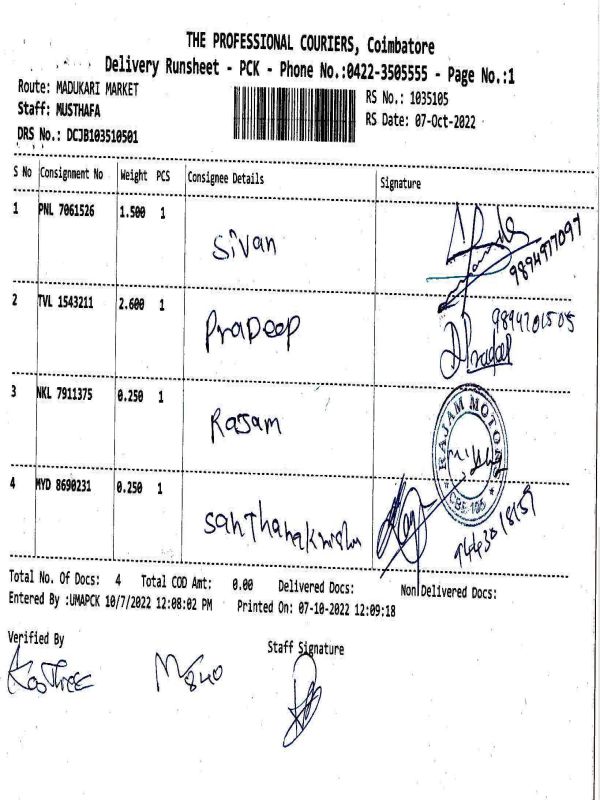 THE PROFESSIONAL COURIERS, Coimbatore
Delivery Runsheet - PCK - Phone No.:0422-3505555 - Page No.:1
Route: MADUKARI MARKET
RS No.: 1035105
Staff: MUSTHAFA
RS Date: 07-Oct-2022
DRS No.: DCJB103510501
S No Consignment No Weight PCS Consignee Details Signature
1 PNL 7061526 1.500 1 Sivan
2 TVL 1543211 2.600 1 Pradeep
Pradeep
3 NKL 7911375 0.250 1 Rajam
RAJAM MOTOR
CBE-105
4 MYD 8690231 0.250 1
Total No. Of Docs: 4 Total COD Amt: 0.00 Delivered Docs: Non Delivered Docs:
Entered By :UMAPCK 10/7/2022 12:08:02 PM Printed On: 07-10-2022 12:09:18
Verified By Staff Signature